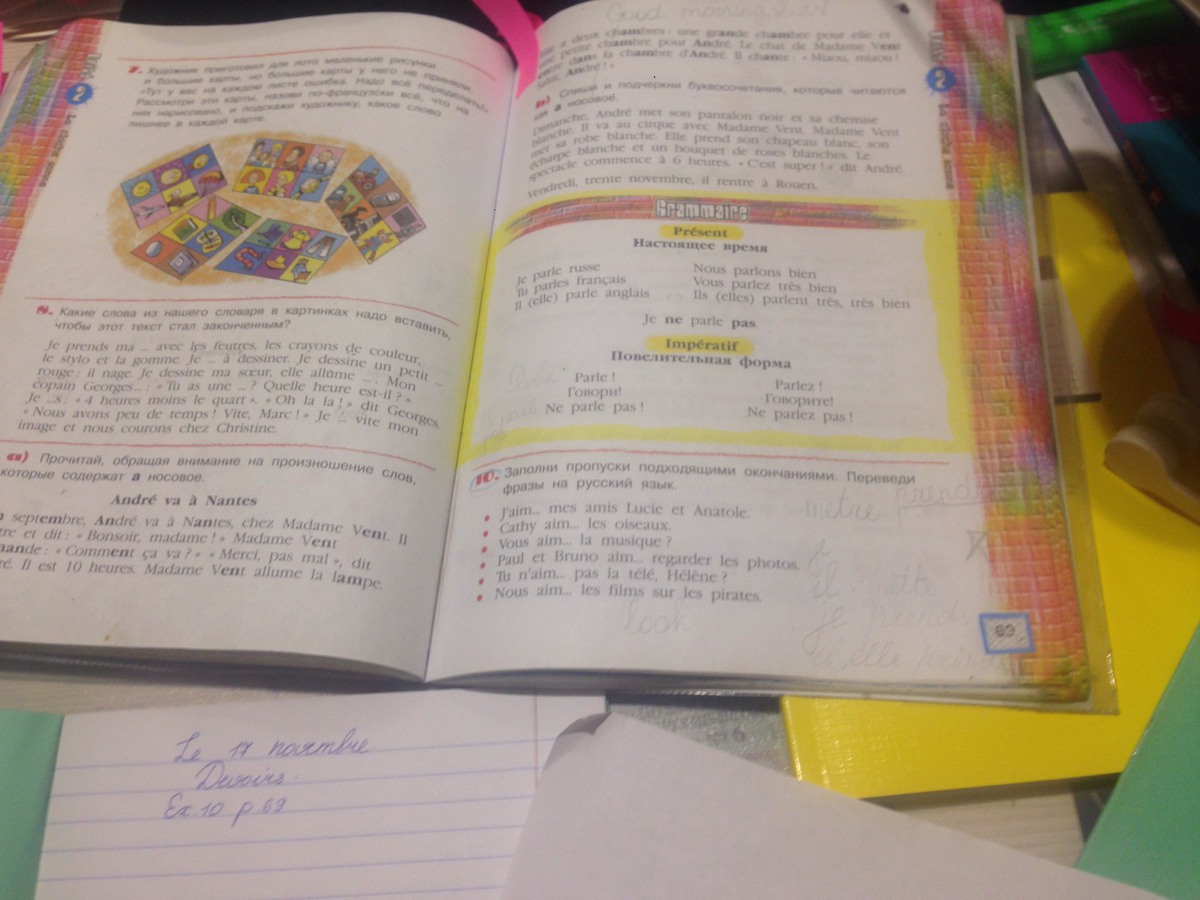 2
La chose bonne
7. Художник приготовил для лото маленькие рисунки
и большие карты, но большие карты у него не приняли.
«Тут у вас на каждом листе ошибка. Надо всё переделать!»
Рассмотри эти карты, назови по-французски всё, что на
них нарисовано, и подскажи художнику, какое слово
лишнее в каждой карте.
8. Какие слова из нашего словаря в картинках надо вставить,
чтобы этот текст стал законченным?
Je prends ma ... avec les feutres, les crayons de couleur,
le stylo et la gomme. Je ... à dessiner. Je dessine un petit ...
rouge : il nage. Je dessine ma sœur, elle allume ... . Mon
copain Georges... : « Tu as une ... ? Quelle heure est-il ? »
Je ...s : « 4 heures moins le quart ». « Oh la la ! » dit Georges.
« Nous avons peu de temps ! Vite, Marc ! » Je ... vite mon
image et nous courons chez Christine.
а) Прочитай, обращая внимание на произношение слов,
которые содержат а носовое.
André va à Nantes
septembre, André va à Nantes, chez Madame Vent. Il
tre et dit : « Bonsoir, madame ! » Madame Vent
mande : « Comment ça va ? » « Merci, pas mal », dit
ré. Il est 10 heures. Madame Vent allume la lampe.
Good morning
a deux chambres : une grande chambre pour elle et
une petite chambre pour André. Le chat de Madame Vent
entre dans la chambre d'André. Il chante : « Miaou, miaou !
Salut, André ! »
в) Спиши и подчеркни буквосочетания, которые читаются
как а носовое.
Dimanche, André met son pantalon noir et sa chemise
blanche. Il va au cirque avec Madame Vent. Madame Vent
met sa robe blanche. Elle prend son chapeau blanc, son
écharpe blanche et un bouquet de roses blanches. Le
spectacle commence à 6 heures. « C'est super ! » dit André.
Vendredi, trente novembre, il rentre à Rouen.
2
Grammaire
Présent
Настоящее время
Je parle russe Nous parlons bien
Tu parles français Vous parlez très bien
Il (elle) parle anglais Ils (elles) parlent très, très bien
Je ne parle pas.
Impératif
Повелительная форма
Parle ! Parlez !
Говори! Говорите!
Ne parle pas ! Ne parlez pas !
10. Заполни пропуски подходящими окончаниями. Переведи
фразы на русский язык.
• J'aim... mes amis Lucie et Anatole.
• Cathy aim... les oiseaux.
• Vous aim... la musique ?
• Paul et Bruno aim... regarder les photos.
• Tu n'aim... pas la télé, Hélène ?
• Nous aim... les films sur les pirates.
look
metre prend
il
je prends
il, elle prend
69
Le 17 novembre
Devoirs.
Ex. 10 p. 69
6